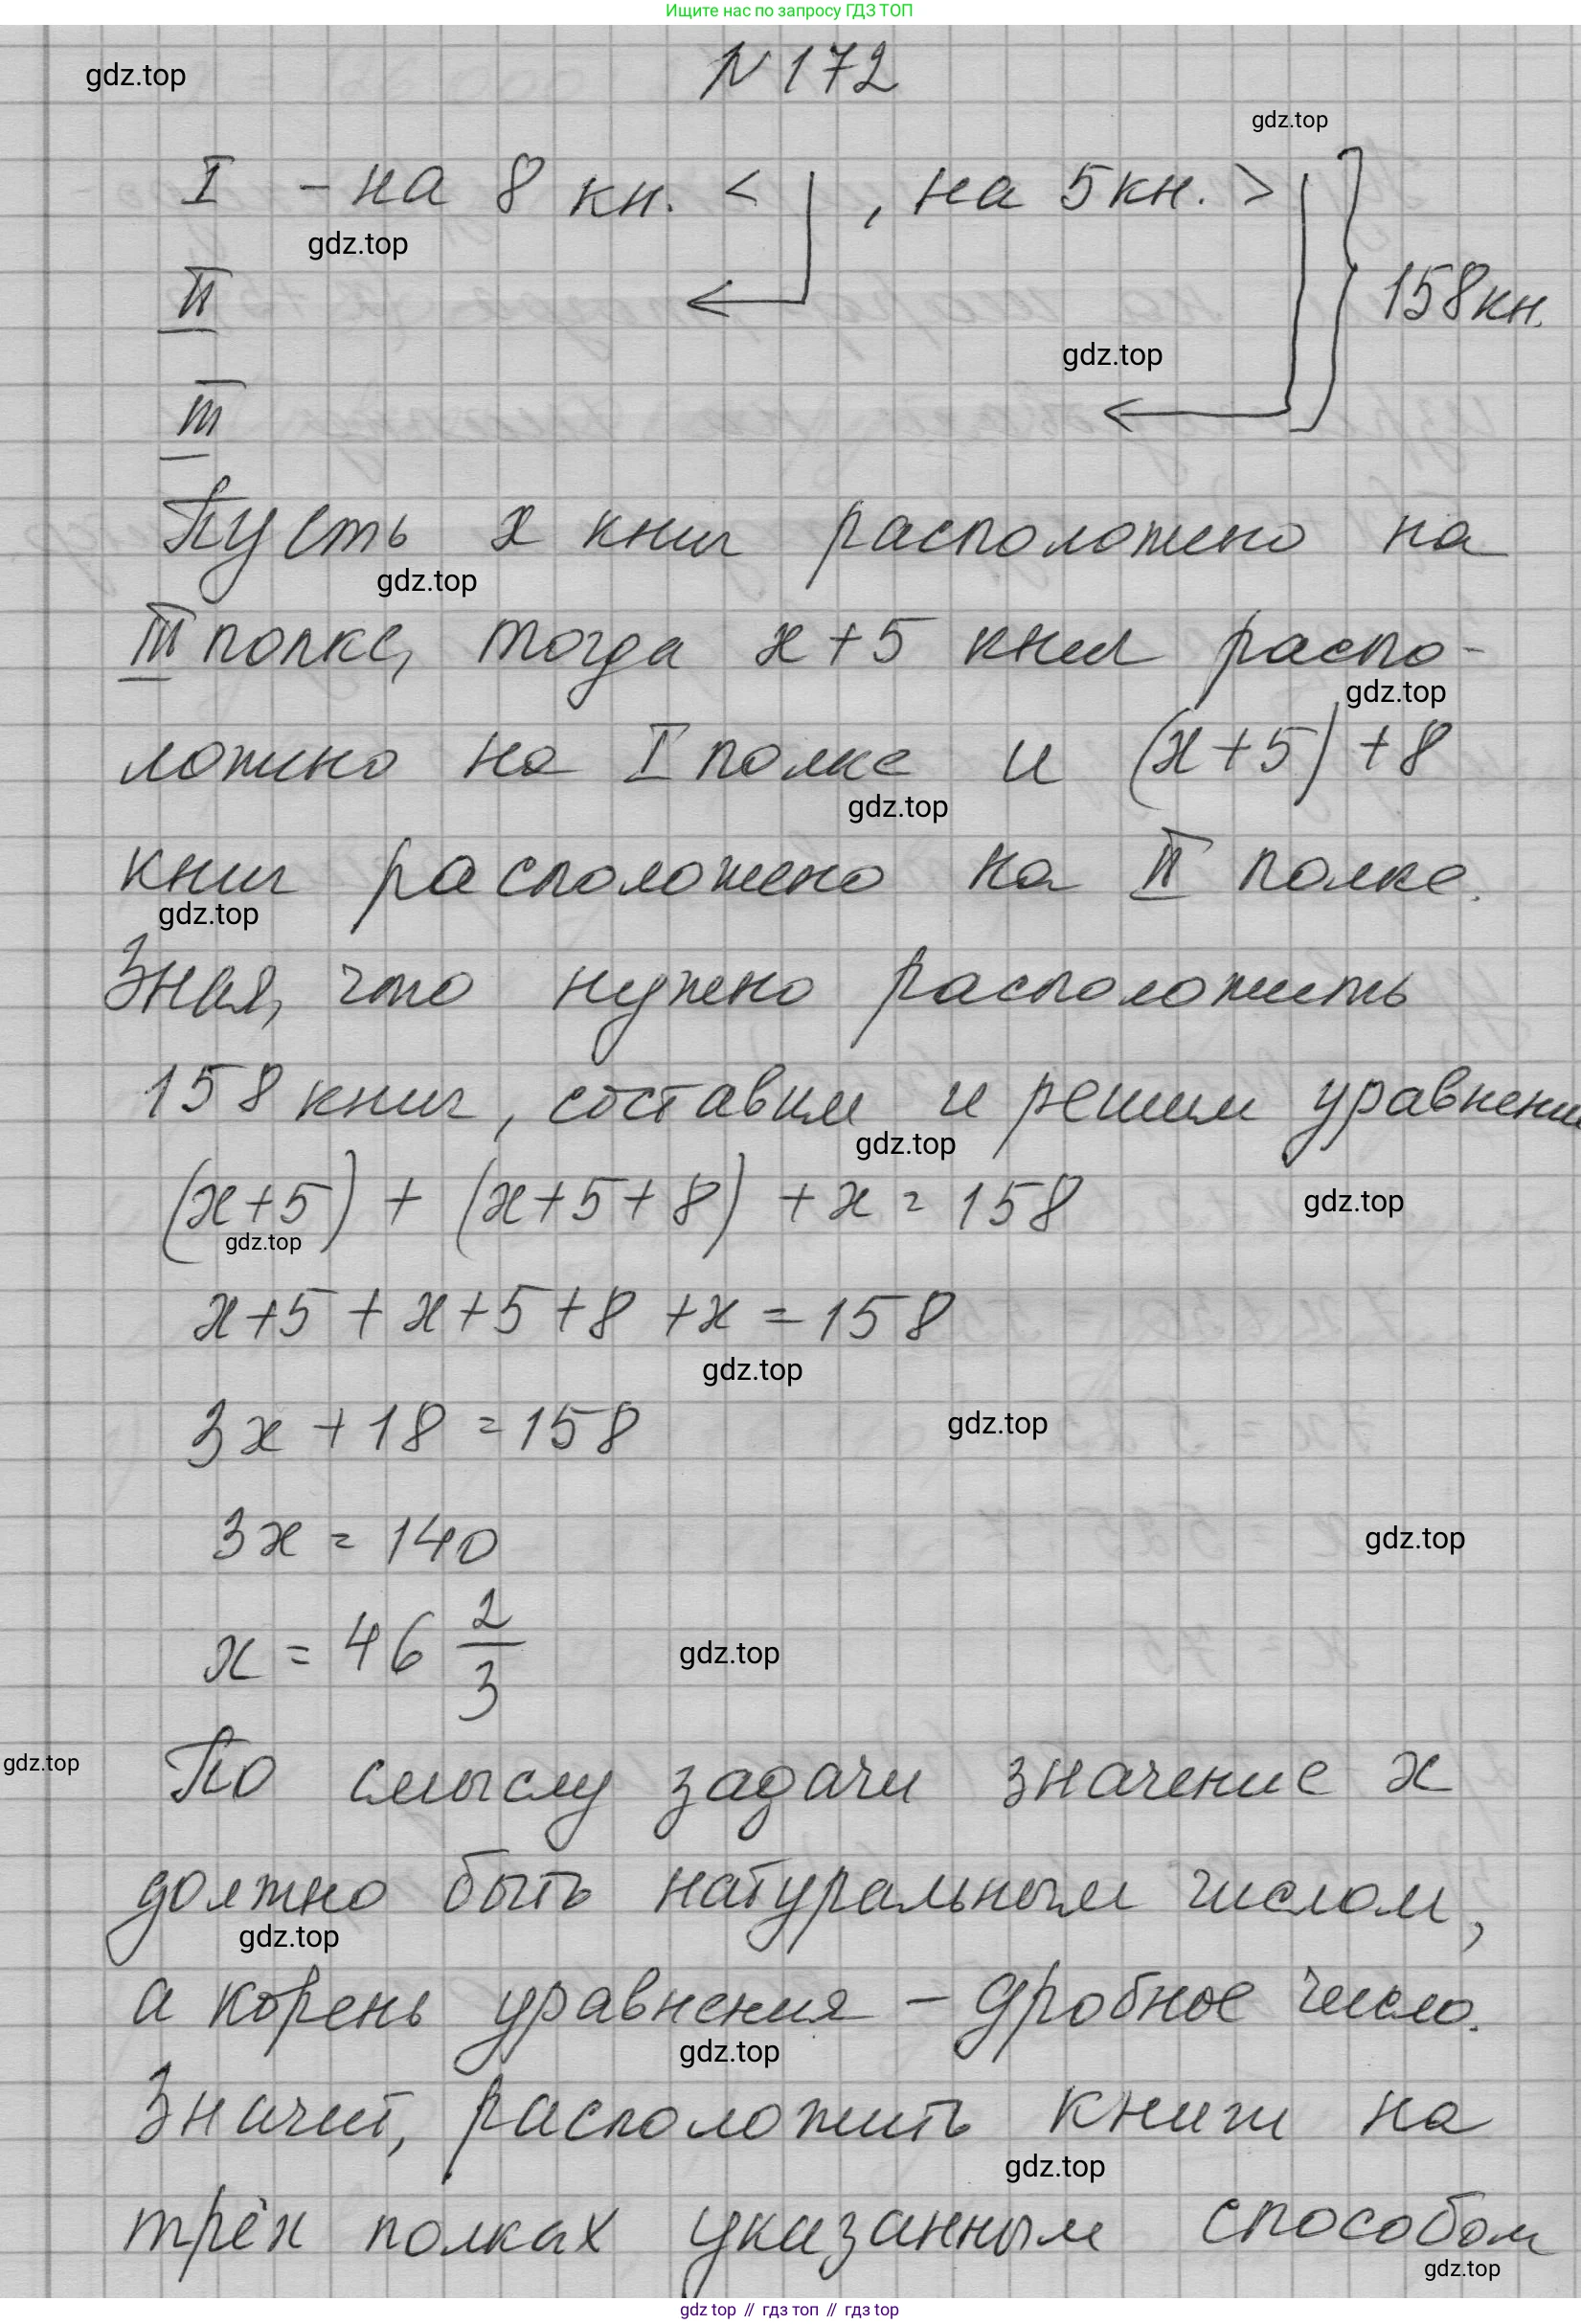 Ищите нас по запросу ГДЗ ТОП
N 172
gdz.top
gdz.top
I - на 8 кн. < , на 5 кн. >
gdz.top
II
158 кн.
gdz.top
III
Пусть x книг расположено на
gdz.top
III полке, тогда x + 5 книг распо-
gdz.top
ложено на I полке и (x + 5) + 8
gdz.top
книг расположено на II полке.
gdz.top
Зная, что нужно расположить
158 книг, составим и решим уравнени
gdz.top
(x+5) + (x+5+8) + x = 158
gdz.top
gdz.top
x+5 + x+5+8 + x = 158
gdz.top
3x + 18 = 158
gdz.top
3x = 140
gdz.top
x = 46 2/3
gdz.top
По смыслу задачи значение x
gdz.top
должно быть натуральным числом,
gdz.top
а корень уравнения - дробное число.
gdz.top
Значит, расположить книги на
gdz.top
трёх полках указанным способом
gdz.top
gdz top // гдз топ // гдз top